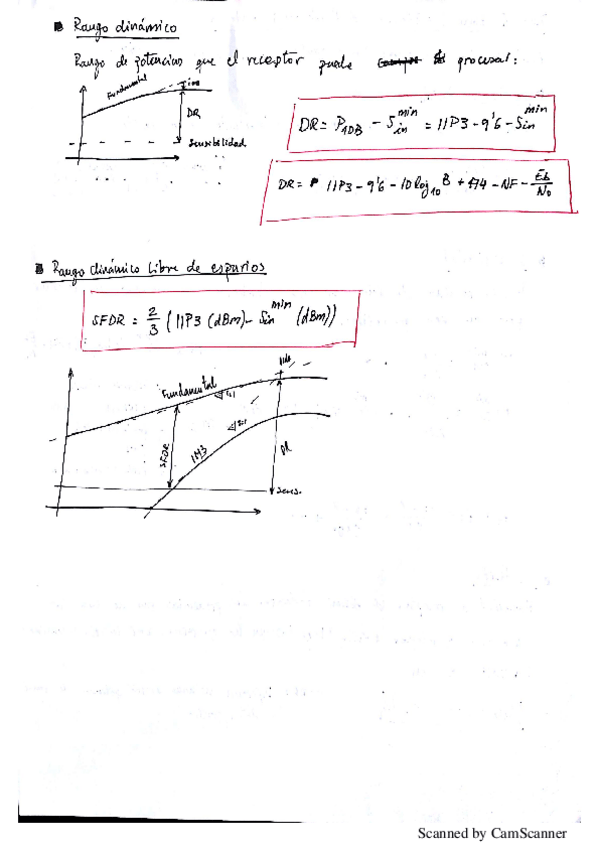 Rango dinámico
Rango de potencias que el receptor puede procesar:
Fundamental
DR
Sensibilidad
DR = P1DB - Sin min = IIP3 - 9'6 - Sin min
DR = IIP3 - 9'6 - 10 log10 B + 174 - NF - Eb/N0
Rango dinámico libre de espurios
SFDR = 2/3 (IIP3 (dBm) - Sin min (dBm))
Fundamental
1:1
3:1
SFDR
IM3
DR
sens.
Scanned by CamScanner